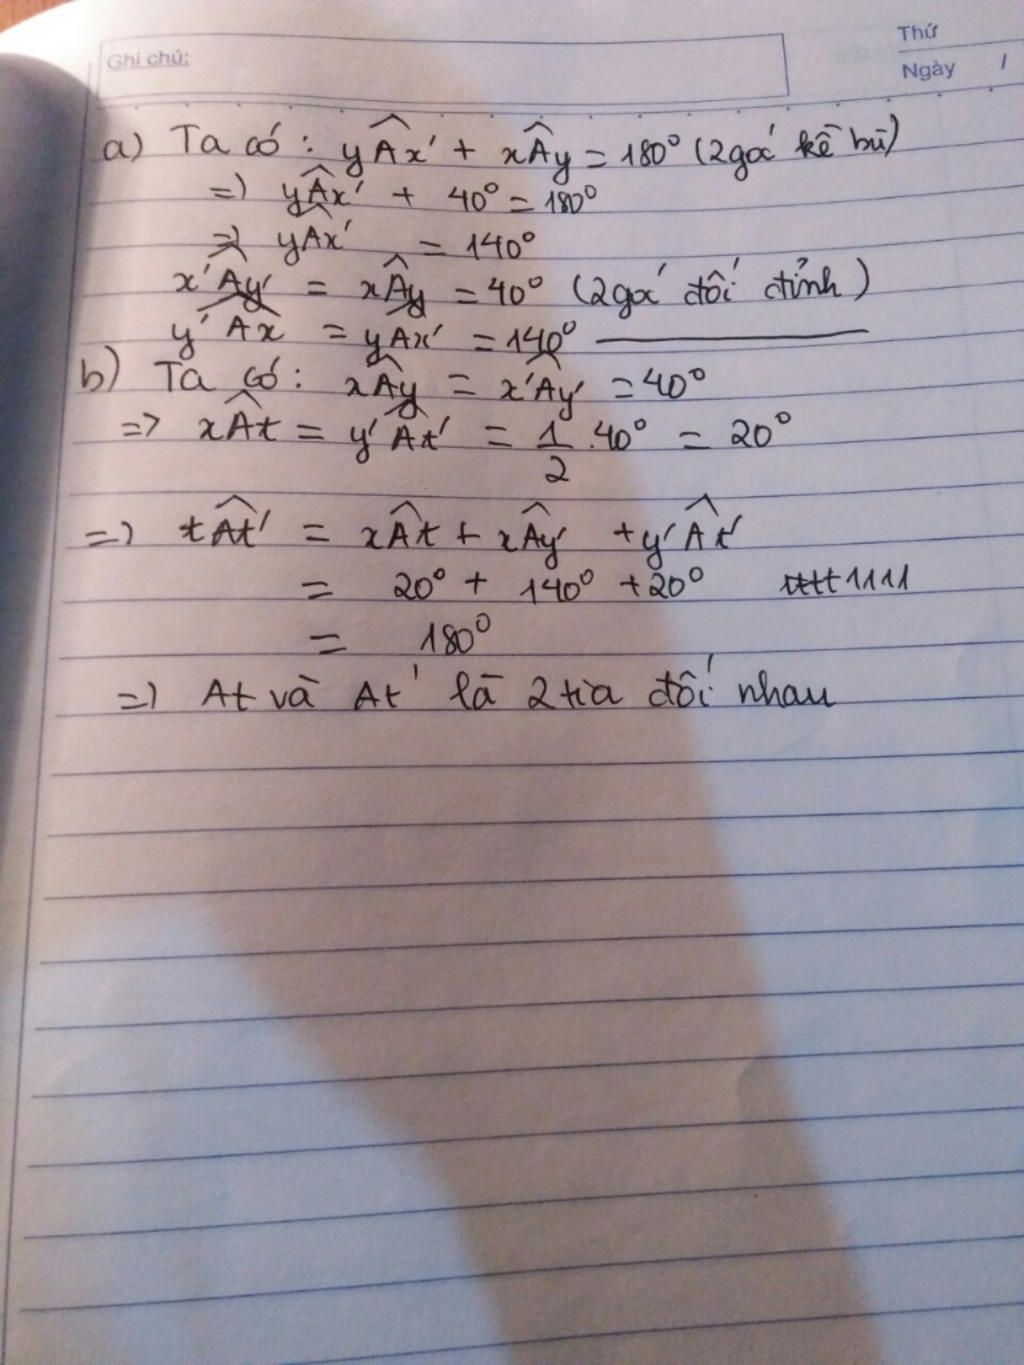 Ghi chú:
Thứ
Ngày /
a) Ta có: yÂx' + xÂy = 180° (2 góc kề bù)
=) yÂx' + 40° = 180°
=) yÂx' = 140°
x'Ây' = xÂy = 40° (2 góc đối đỉnh)
y'Âx = yÂx' = 140° ————
b) Ta có: xÂy = x'Ây' = 40°
=> xÂt = y'Ât' = 1/2 . 40° = 20°
=) tÂt' = xÂt + xÂy' + y'Ât'
= 20° + 140° + 20° 1111
= 180°
=) At và At' là 2 tia đối nhau